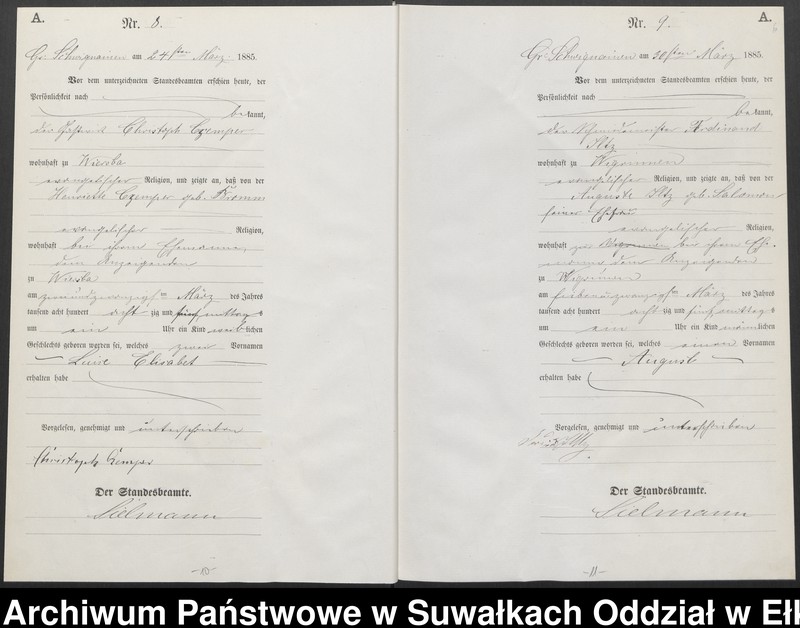 A.
Nr. 8.
Gr. Schwignainen am 24sten März 1885.
Vor dem unterzeichneten Standesbeamten erschien heute, der
Persönlichkeit nach
bekannt,
der Christoph Czemper
wohnhaft zu Wiersba
evangelischer Religion, und zeigte an, daß von der
Henriette Czemper geb.
evangelischer Religion,
wohnhaft bei ihrem Ehemanne,
dem Anzeigenden
zu Wiersba
am zweiundzwanzigsten März des Jahres
tausend acht hundert achtzig und fünf mittags
um ein Uhr ein Kind weiblichen
Geschlechts geboren worden sei, welches zwei Vornamen
Luise Elisabet
erhalten habe
Vorgelesen, genehmigt und unterschrieben
Christoph Czemper
Der Standesbeamte.
Sielmann
-10-
A.
Nr. 9.
Gr. Schwignainen am 30sten März 1885.
Vor dem unterzeichneten Standesbeamten erschien heute, der
Persönlichkeit nach
bekannt,
der Ferdinand
Iltz
wohnhaft zu Wigrinnen
evangelischer Religion, und zeigte an, daß von der
Auguste Iltz geb. Salomon
seiner Ehefrau
evangelischer Religion,
wohnhaft zu Wigrinnen bei ihrem Ehe-
manne dem Anzeigenden
zu Wigrinnen
am siebenundzwanzigsten März des Jahres
tausend acht hundert achtzig und fünf mittags
um ein Uhr ein Kind männlichen
Geschlechts geboren worden sei, welches einen Vornamen
August
erhalten habe
Vorgelesen, genehmigt und unterschrieben
Der Standesbeamte.
Sielmann
-11-
Archiwum Państwowe w Suwałkach Oddział w Ełk